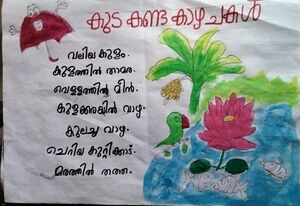 കുട കണ്ട കാഴ്ചകൾ
വലിയ കുളം.
കുളത്തിൻ താമര.
വെള്ളത്തിൻ മീൻ.
കുളക്കരയിൽ വാഴ.
കുലച്ച വാഴ.
ചെറിയ കുറ്റിക്കാട്.
മരത്തിൽ തത്ത.